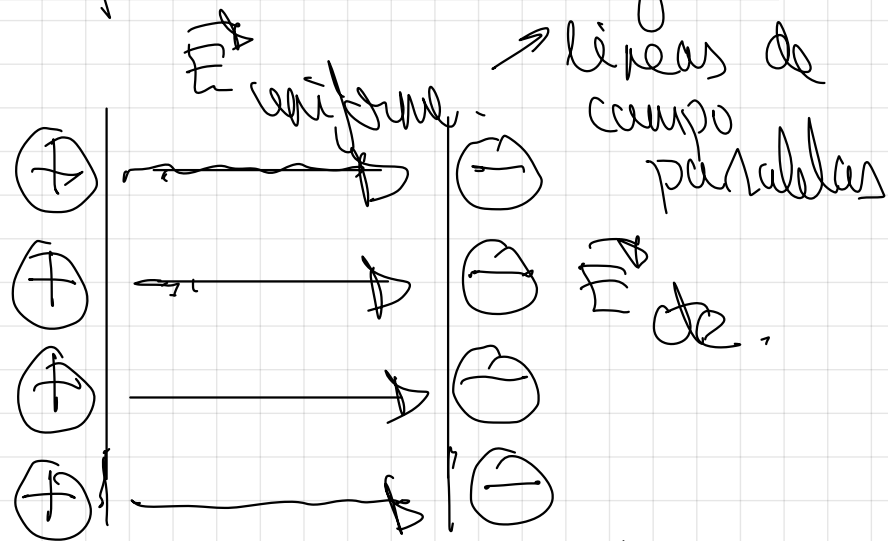 E⃗ uniforme.
líneas de
campo
paralelas
+ −
+ −
E⃗ cte.
+ −
+ −